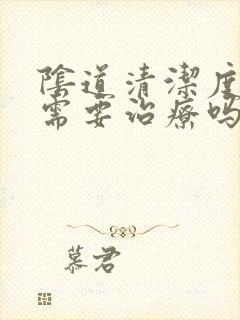 陰道清潔度
需要治療嗎
慕君